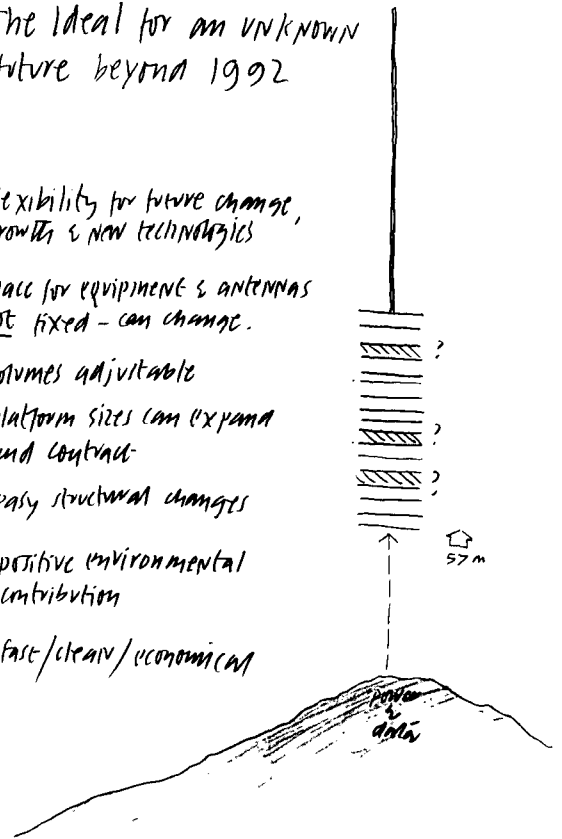 The Ideal for an UNKNOWN
future beyond 1992
exibility for future change,
rowth & new technologies
ace for equipment & antennas
ot fixed – can change.
olumes adjustable
latform sizes can expand
and contract
easy structural changes
positive environmental
contribution
fast/clean/economical
?
?
?
57m
power
&
data